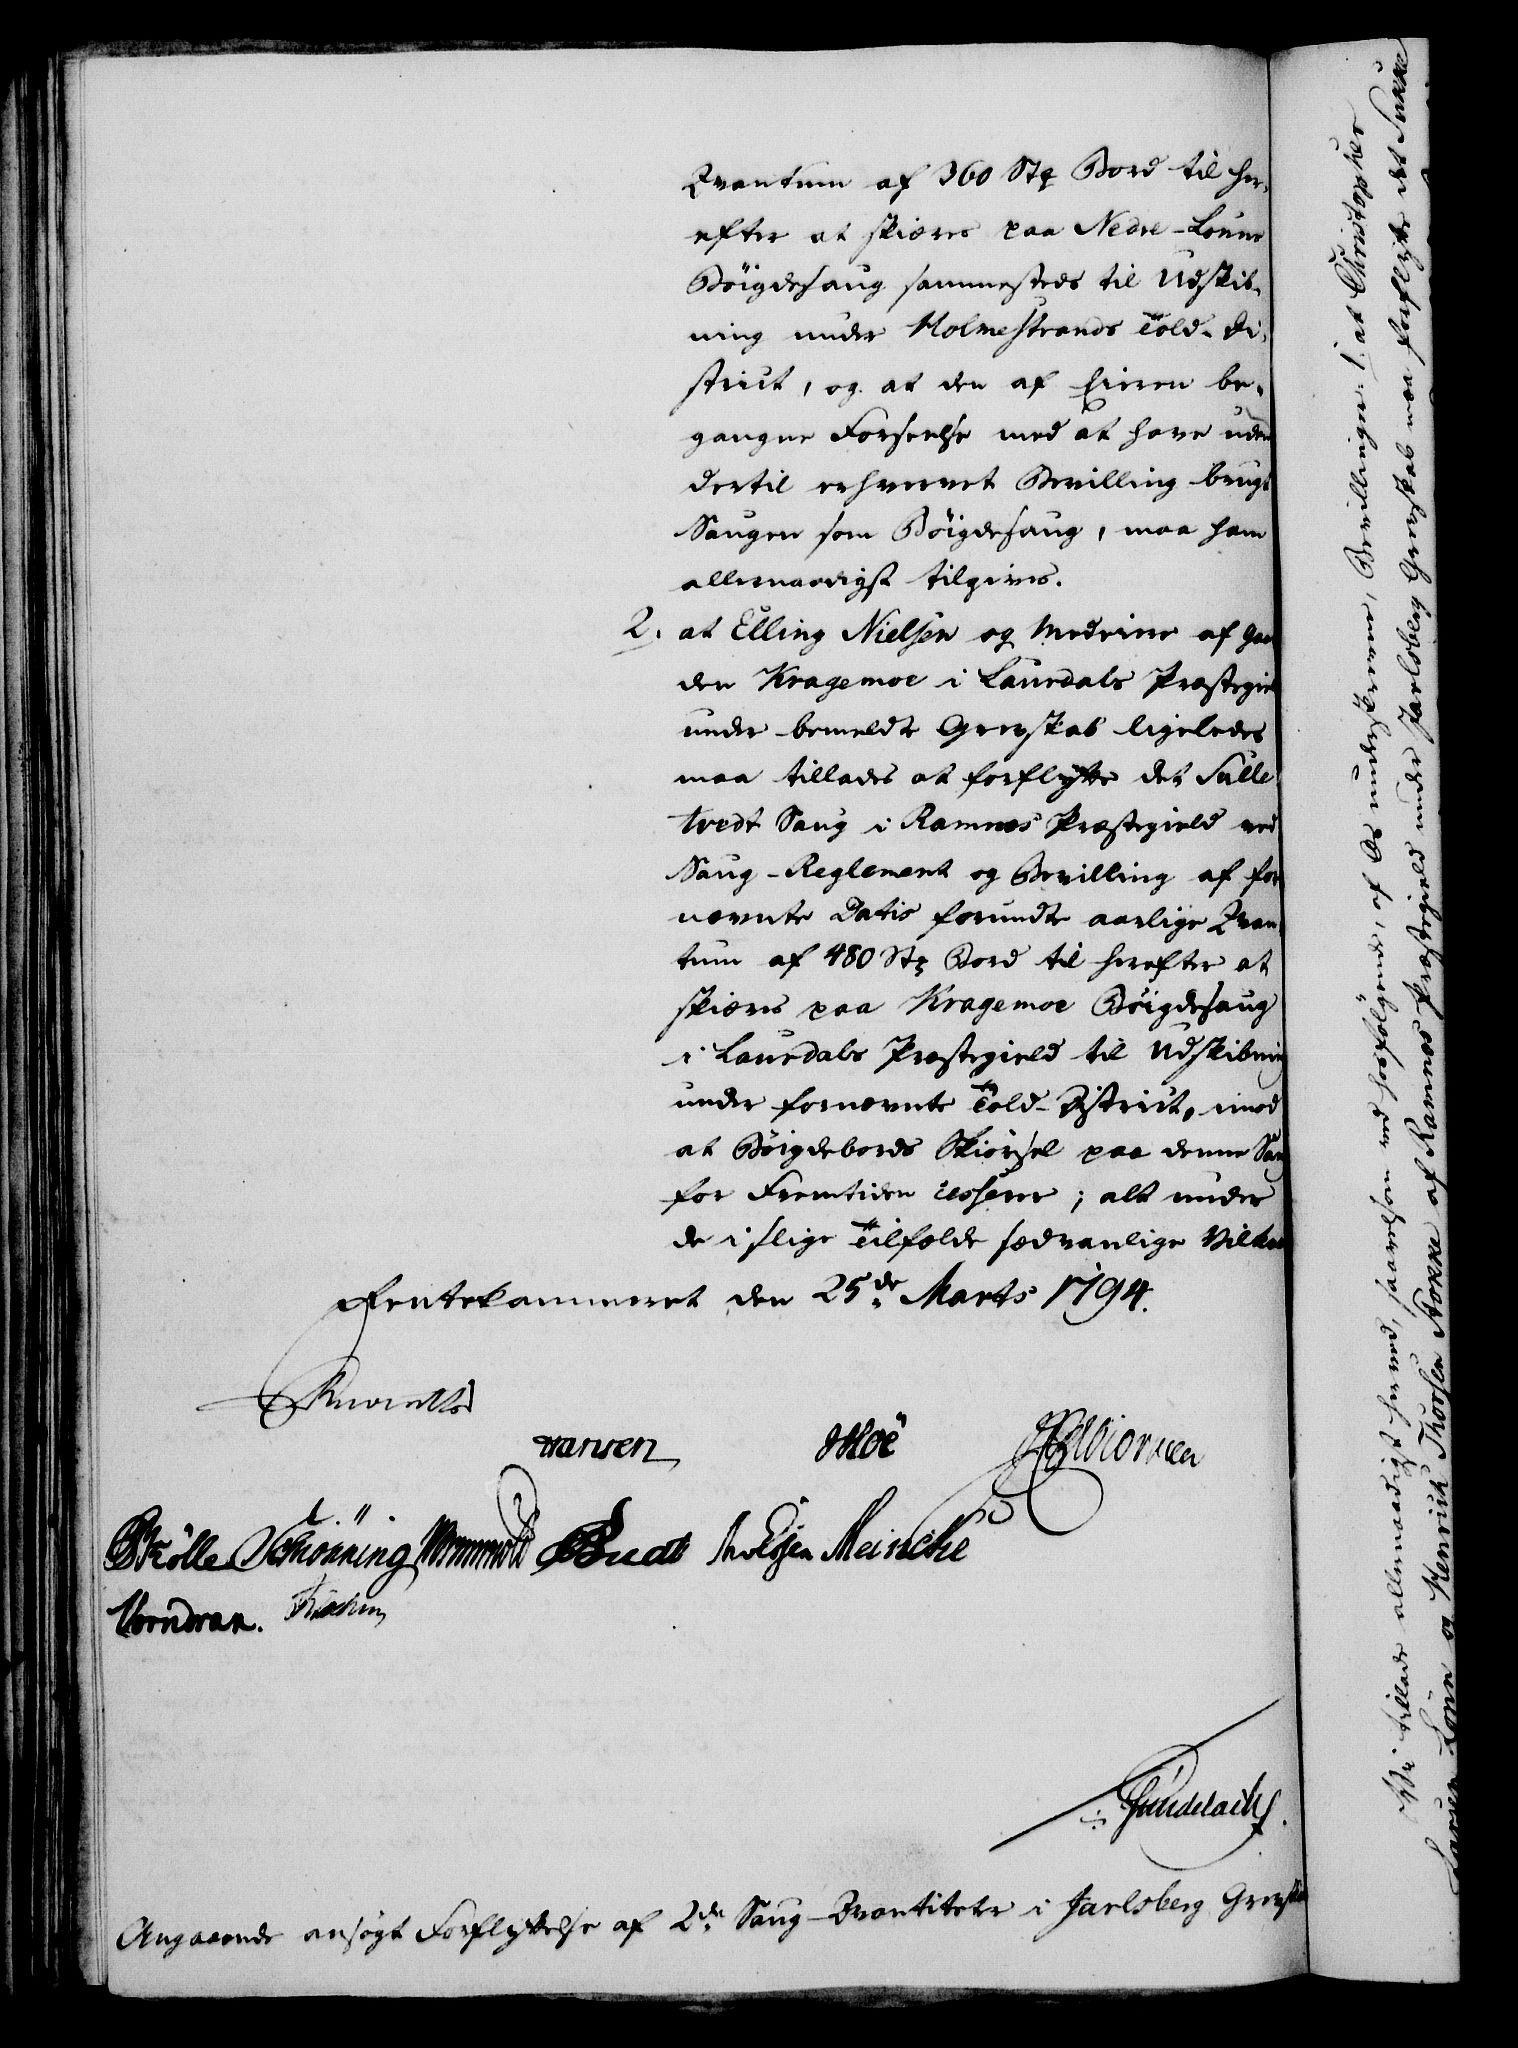 Qvantum af 360 Stk Bord til her-
efter at skiæres paa Nedre-Lønne
Böigdesaug sammesteds til Udskib-
ning under Holmestrands Told-Di-
strict, og at den af Eieren be-
gangne Forseelse med at have uden
dertil erhvervet Bevilling brugt
Saugen som Böigdesaug, maa ham
allernaadigst tilgives.
2. at Elling Nielsen og Medeiere af Gaar
den Kragemoe i Laurdals Præstegield
under bemeldte Grevskab ligeledes
maa tillades at forflytte det Sulle-
tvedt Saug i Ramnæs Præstegield ved
Saug-Reglement og Bevilling af for
nævnte Datis forundte aarlige Qvan-
tum af 480 Stk Bord til herefter at
skiæres paa Kragemoe Böigdesaug
i Laurdals Præstegield til Udskibning
under fornævnte Told-District, imod
at Böigdebords Skiørsel paa denne Saug
for Fremtiden cesserer; alt under
de i slige Tilfælde sædvanlige Vilkaar
Rentekammeret den 25de Marts 1794.
Hansen Moë
Schönning Wormwold Meincke
Vorndran.
Gundelach.
Angaaende ansøgt Forflyttelse af 2de Saug-Qvantiteter i Jarlsberg Grevskab
Vi tillade allernaadigst herved, saavelsom ved hosfølgende, af Os underskrevne, Bevillinger: 1. at Christopher
Larsen Lönn og Henrich Thorsen Stokke af Ramnæs Præstegield under Jarlsberg Grevskab maa forflytte det Sukke